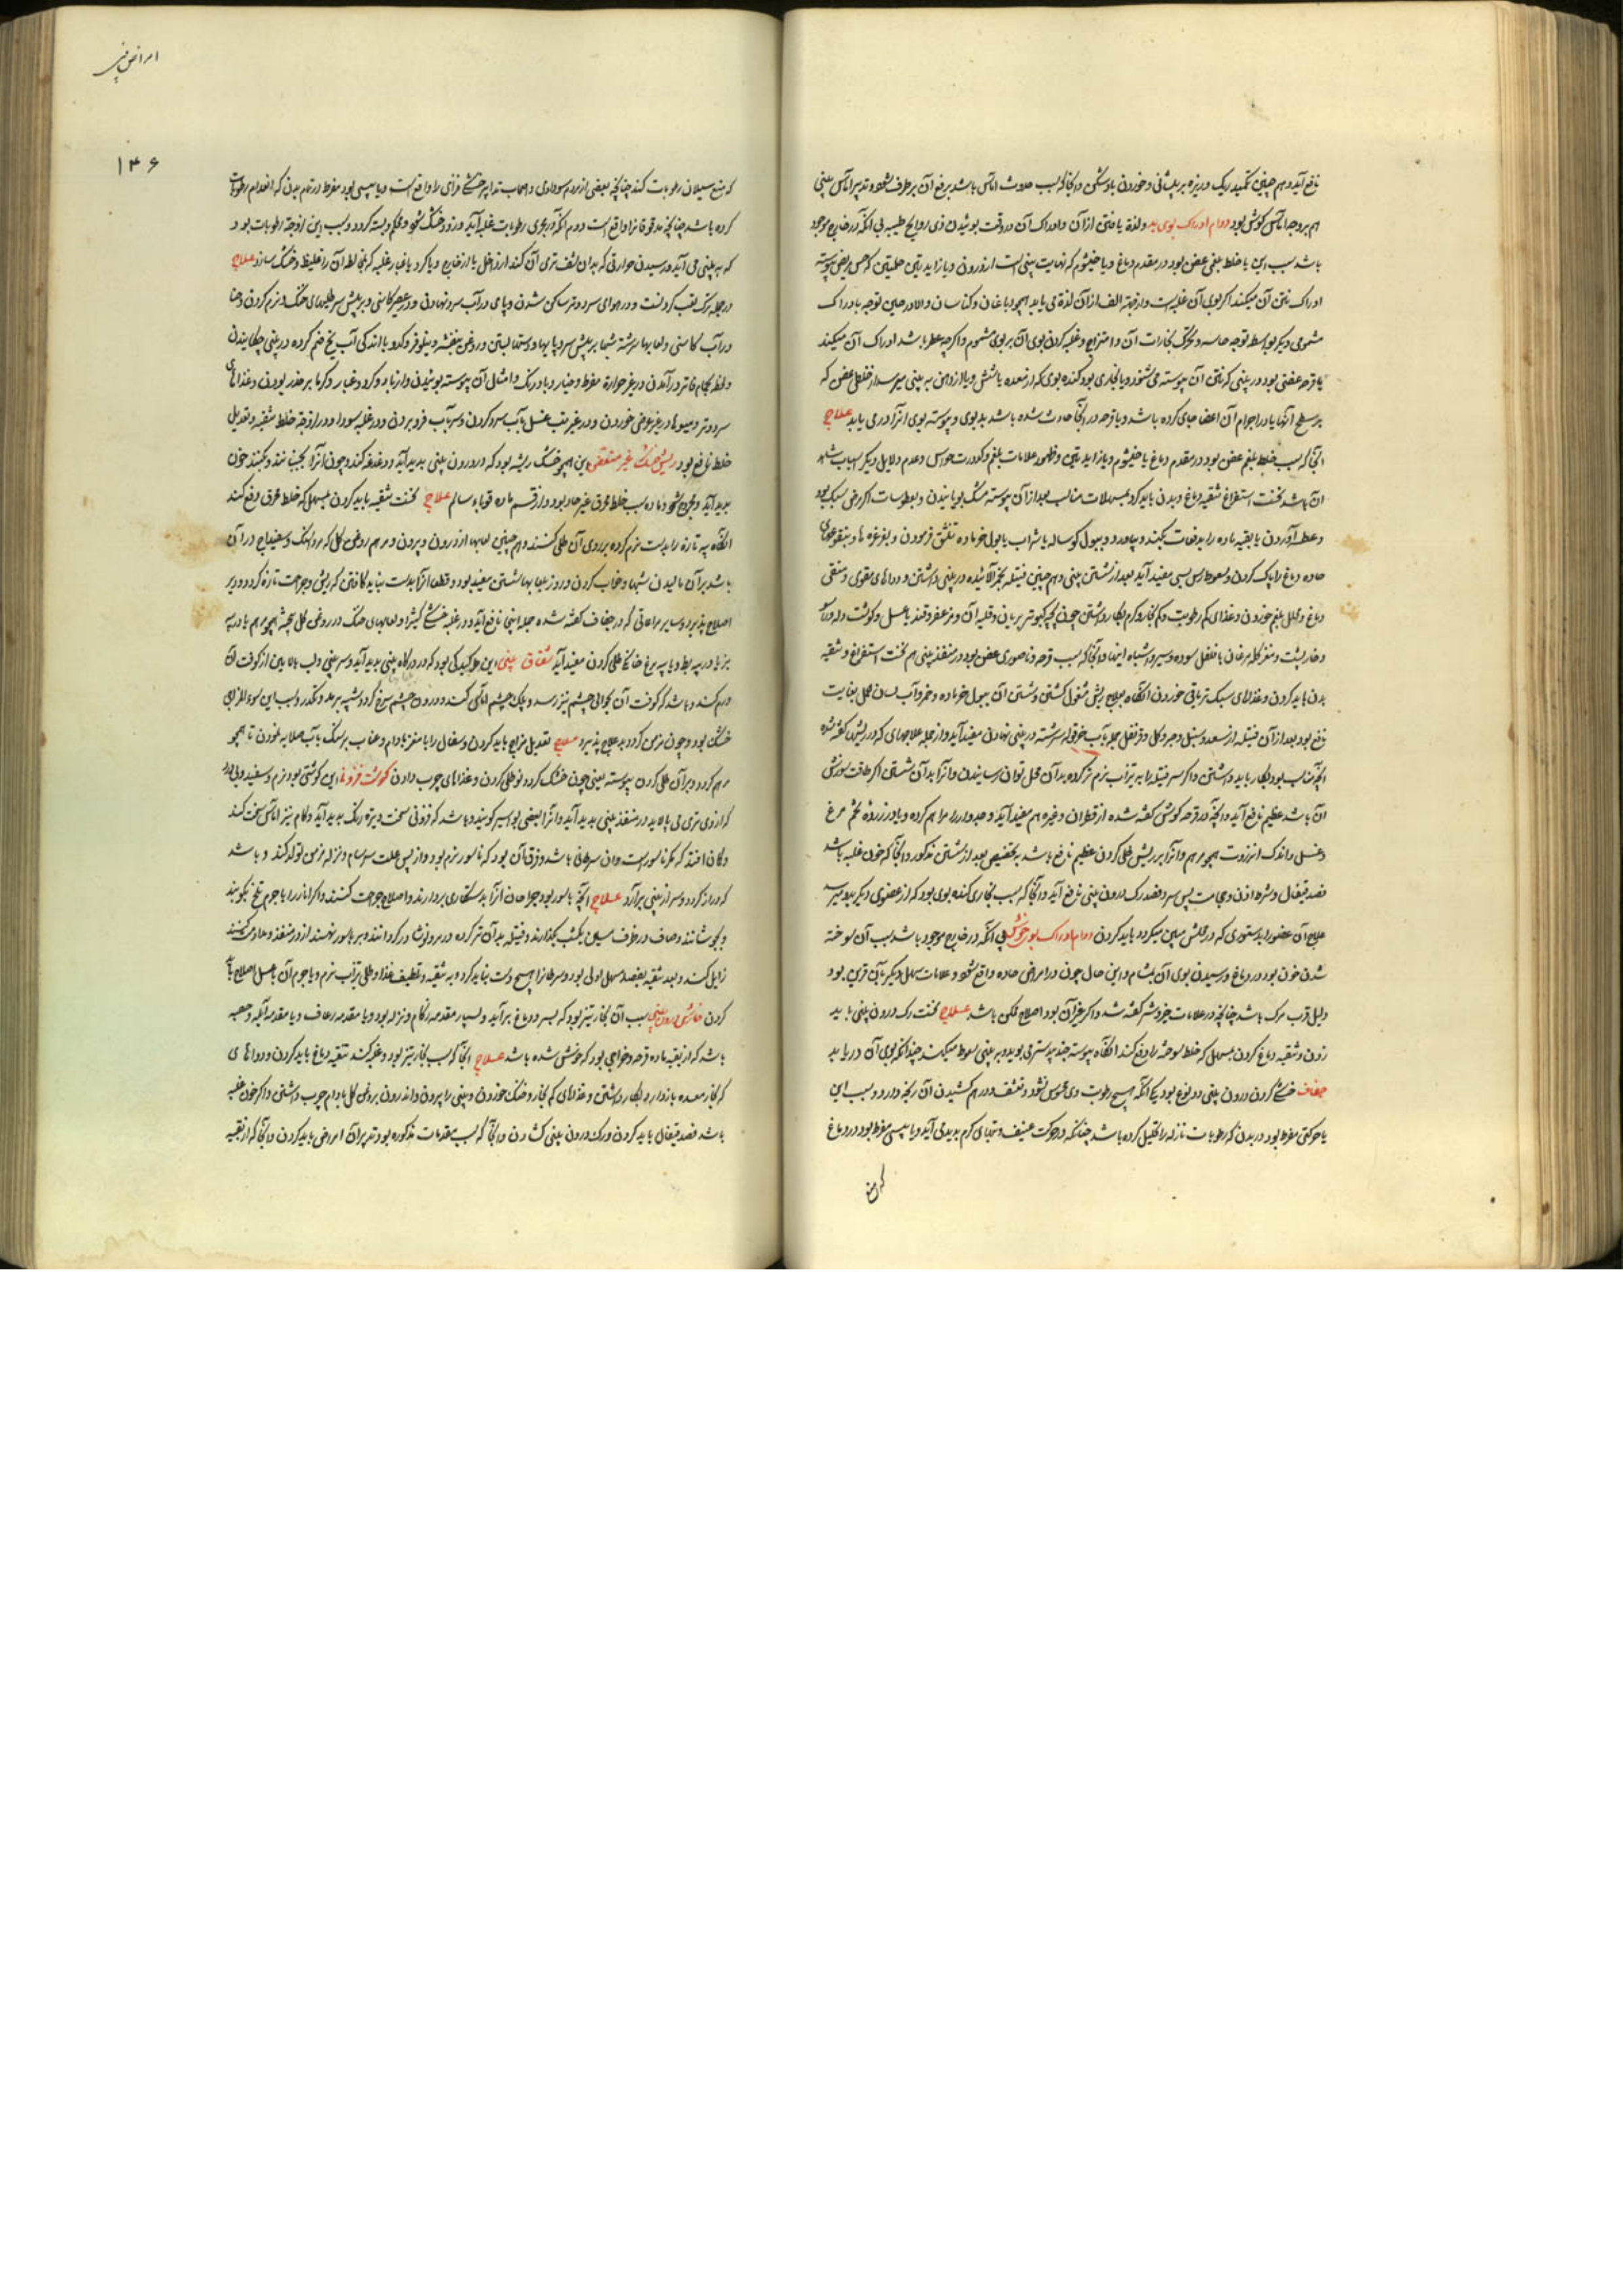 نافع آید و هم چنین تکمید ریک و ریزه بر پیشانی و خوردن باد شکن و آنجا که سبب حدوث آماس باشد برفع آن برطرف شود و تدبیر آماس بینی
هم بر وجه آماس کوش بود دوام ادراک بوی بد ولذة یافتن از آن و ادراک آن در وقت بوئیدن ذی روایح طیبه بی آنکه در خارج موجود
باشد سبب این یا خلط بلغمی عفن بود در مقدم دماغ و یا خیشوم که نهایت بینی است از درون و یا زایدتین حلمتین که حس مریض پیوسته
ادراک نتن آن میکند اکر بوی آن غالبست و از جهة الف از آن لذة می یابد همچو دباغان و کناسان و الا در حین توجه بادراک
مشمومی دیکر بواسطه توجه حاسه و تحرک بخارات آن و امتزاج و غلبه کردن بوی آن بر بوی مشموم و اکرچه عطر باشد ادراک آن میکند
یا قرحه عفنی بود در بینی که نتن آن پیوسته می شنود و یا بخاری بود کنده بوی که از معده یا شش و یا از دهن به بینی میرسد از خلطی عفن که
بر سطح آنها یا در اجرام آن اعضا جای کرده باشد و یا قرحه در آنجا حادث شده باشد بدبوی و پیوسته بوی آنرا در می یابد علاج
آنجا که سبب خلط بلغم عفن بود در مقدم دماغ یا خیشوم و یا زایدتین و ظهور علامات بلغم و کدورت حواس و عدم دلایل دیکر اسباب شاهد
آن باشد نخست استفراغ و تنقیه دماغ و بدن باید کرد بمسهلات مناسب بعد از آن پیوسته مشک بویانیدن و بعطوسات اکر مرض سبک بود
و عطسه آوردن با بقیه ماده را بدفعات بکنند و بیاورد و ببول کوساله یا شراب یا بول خر ماده تنشق فرمودن و بغرغره ها و بنقوعهای
حاده دماغ را پاک کردن و سعوط ارس بسی مفید آید بعد از شستن بینی و هم چنین فتیله بخر آلائیده در بینی داشتن و دواهای مقوی و منقی
دماغ و محلل بلغم خوردن و غذای کم رطوبت و کم بخار و کرم بکار داشتن چون بچه کبوتر بریان و قلیه آن و مزعفر و قند با عسل و کوشت
و خارپشت و مغز کله مرغان با فلفل سوده و سیر و اشباه اینها و آنجا که سبب قرحه و ناصوری عفن بود در منفذ بینی هم نخست استفراغ و تنقیه
بدن باید کردن و غذاهای سبک تریاقی خوردن آنکاه بعلاج ریش مشغول کشتن و شستن آن ببول خر ماده و خمر و آب لسان حمل بغایت
نافع بود بعد از آن فتیله از سعد و سنبل و مر و کل و قرنفل جمله بآب خرفه سرشته در بینی نهادن مفید آید و از جمله علاجهای که در ریش کفته شد
آنچه مناسب بود بکار باید داشتن و اکر سر فتیله را به تیزاب نرم تر کرده بدان محل توان رسانیدن و آنرا بدان شستن اکر طاقت سوزش
آن باشد عظیم نافع آید و آنچه در قرحه کوش کفته شده از قطران و غیره هم مفید آید و صبر و مر را مرهم کرده و یا در زرده تخم مرغ
و عسل و اندک انزروت همچو مرهم و آنرا بر ریش طلی کردن عظیم نافع باشد بتخصیص بعد از شستن مذکور و آنجا که خون غلبه باشد
فصد قیفال و شره اذن و حجامت پس سر و فصد رک درون بینی نافع آید و آنجا که سبب بخاری کنده بوی بود که از عضوی دیکر بدو میرسد
علاج آن عضو را بدستوری که در محلش مبین میکردد باید کردن دوام ادراک بوی خوش بی آنکه در خارج موجود باشد سبب آن سوخته
شدن خون بود در دماغ و رسیدن بوی آن بمشام و این حال چون در امراض حاده واقع شود و علامات مهلک دیکر بآن قرین بود
دلیل قرب مرک باشد چنانچه در علامات خیر و شر کفته شد و اکر غیر آن بود اصلاح ممکن باشد علاج نخست رک درون بینی باید
زدن و تنقیه دماغ کردن بمسهلی که خلط سوخته را دفع کند آنکاه پیوسته جند بیدستر می بوید و به بینی سعوط میکند چندانکه بوی آن دریابد
جفاف خشکی کردن درون بینی دو نوع بود یکی آنکه هیچ رطوبت در وی محسوس نشود و تنشف در هم کشیدن آن رنجه دارد و سبب این
یا حرکتی مفرط بود در بدن که رطوبات نازله را تحلیل کرده باشد چنانکه در حرکت عنیف و تبهای کرم بدید می آید و یا یبسی مفرط بود در دماغ
که منع
امراض بینی
۱۴۶
که منع سیلان رطوبات کند چنانچه بعضی از مردم سوداوی و اصحاب تدابیر خشکی فزای را واقع است و یا یبسی بود مفرط در تمام بدن که انعدام رطوبات
کرده باشد چنانچه مدقوقانرا واقع است دوم آنکه در مجری رطوبات غلبه آید و زود خشک شود و محکم و بسته کردد و سبب این لزوجة رطوبات بود
که به بینی می آید و رسیدن حرارتی که بدان نشف تری آن کند از داخل یا از خارج و یا کرد یا غبار غلبه که بمخالطه آن را غلیظ و خشک سازد علاج
در جمله ترک تعب کردنست و در هوای سرد و تر ساکن شدن و پای در آب سرد نهادن و در عصیر کاسنی و بر پیش سر طلیهای خنک و نرم کردن و حنا
در آب کاسنی و لعابها سرشته شبها بر پیش سر و پایها و دستها بستن و روغن بنفشه و نیلوفر و کدو با اندکی آب یخ ضم کرده در بینی چکانیدن
و لحظه بحمام فاتر درآمدن در غیر حرارة مفرط و خیار و بادرنک و امثال آن پیوسته بوئیدن و از باد و کرد و غبار و کرما بر حذر بودن و غذاهای
سرد و تر و میوها در غیر عوض خوردن و در غیر تب غسل بآب سرد کردن و سر بآب فرو بردن و در غلبه سودا و در لزوجة خلط تنقیه و تعدیل
خلط نافع بود ریش خشک غیر متعفن این همچو خشک ریشه بود که در درون بینی بدید آید و دغدغه کند و چون آنرا بجنبانند و بکنند خون
بدید آید و مجروح شود و ماده سبب خلط محرق غیر حاد بود و از قسم ماده قوبا و سالم علاج نخست تنقیه باید کردن بمسهلی که خلط محرق دفع کند
آنکاه پیه تازه را بدست نرم کرده بر روی آن طلی کنند و هم چنین لعابها از درون و بیرون و مرهم روغن کل که مردسنک و سفیداج در آن
باشد بر آن مالیدن شبها و خواب کردن و روز بلعابها شستن مفید بود و قطعا آنرا بدست نباید کافتن که ریش و جراحت تازه کردد و دیر
اصلاح پذیرد و سایر مراعاتی که در جفاف کفته شده جمله اینجا نافع آید و در غلبه خشکی کتیرا و لعابهای خنک در روغن کل پخته همچو مرهم با در پیه
بز یا در پیه بط و یا پیه مرغ خانکی طلی کردن مفید آید شقاق بینی این طرکیدکی بود که در درکاه بینی بدید آید و سر بینی و لب بالایین از کوفت آن
ورم کند و باشد که کوفت آن بحوالی چشم نیز رسد و پلک چشم آماس کند و درون چشم سرخ کردد
خشک بود و چون مزمن کردد بد علاج پذیرد علاج تعدیل مزاج باید کردن و سفال را با مغز بادام و عناب بر سنک بآب صلابه نمودن تا همچو
مرهم کردد و بر آن طلی کردن پیوسته یعنی چون خشک کردد نو طلی کردن و غذاهای چرب دادن کوشت فزونی این کوشتی بود نرم و سفید و بی درد
که از وی تری می پالاید در منفذ بینی بدید آید و آنرا بعضی بواسیر کویند و باشد که فزونی سخت و تیره رنک بدید آید و کام نیز آماس سخت کند
و کان افتد که مکر ناسورست و آن سرطانی باشد و فرق آن بود که ناسور نرم بود و از پس علت سرسام و نزله مزمن تولد کند و باشد
که دراز کردد و سر از بینی برآرد علاج آنچه ناسور بود جراحان آنرا بدستکاری بردارند و اصلاح جراحت کنند و اکر انار را با جرم تلخ بکوبند
و بجوشانند و صاف در ظرف سربی یکشب بکذارند و فتیله بدان تر کرده در مر و نوشادر کردانند و بر ناسور نهند از در منفذ و مداومت کنند
زایل کند و بعد تنقیه بفصد و مسهل اولی بود و سرطانرا هیچ دست نباید کرد و به تنقیه و تلطیف غذا و طلی تیزاب نرم و یا جرم آن با عسل اصلاح باید
کردن خارش درون بینی سبب آن بخار تیز بود که بسر و دماغ برآید و بسیار مقدمه زکام و نزله بود و یا مقدمه رعاف و یا مقدمه آبله و حصبه
باشد که از بقیه ماده قرحه و خراجی بود که خوش شده باشد علاج آنجا که سبب بخار تیز بود و غلبه کند تنقیه دماغ باید کردن و دواهای
که بخار معده باز دارد بکار داشتن و غذاهای کم بخار و خنک خوردن و بینی را بیرون و اندرون بروغن کل بادام چرب داشتن و اکر خون غلبه
باشد فصد قیفال باید کردن و رک درون بینی کشادن و آنجا که سبب مقدمات مذکوره بود تدبیر آن امراض باید کردن و آنجا که از بقیه